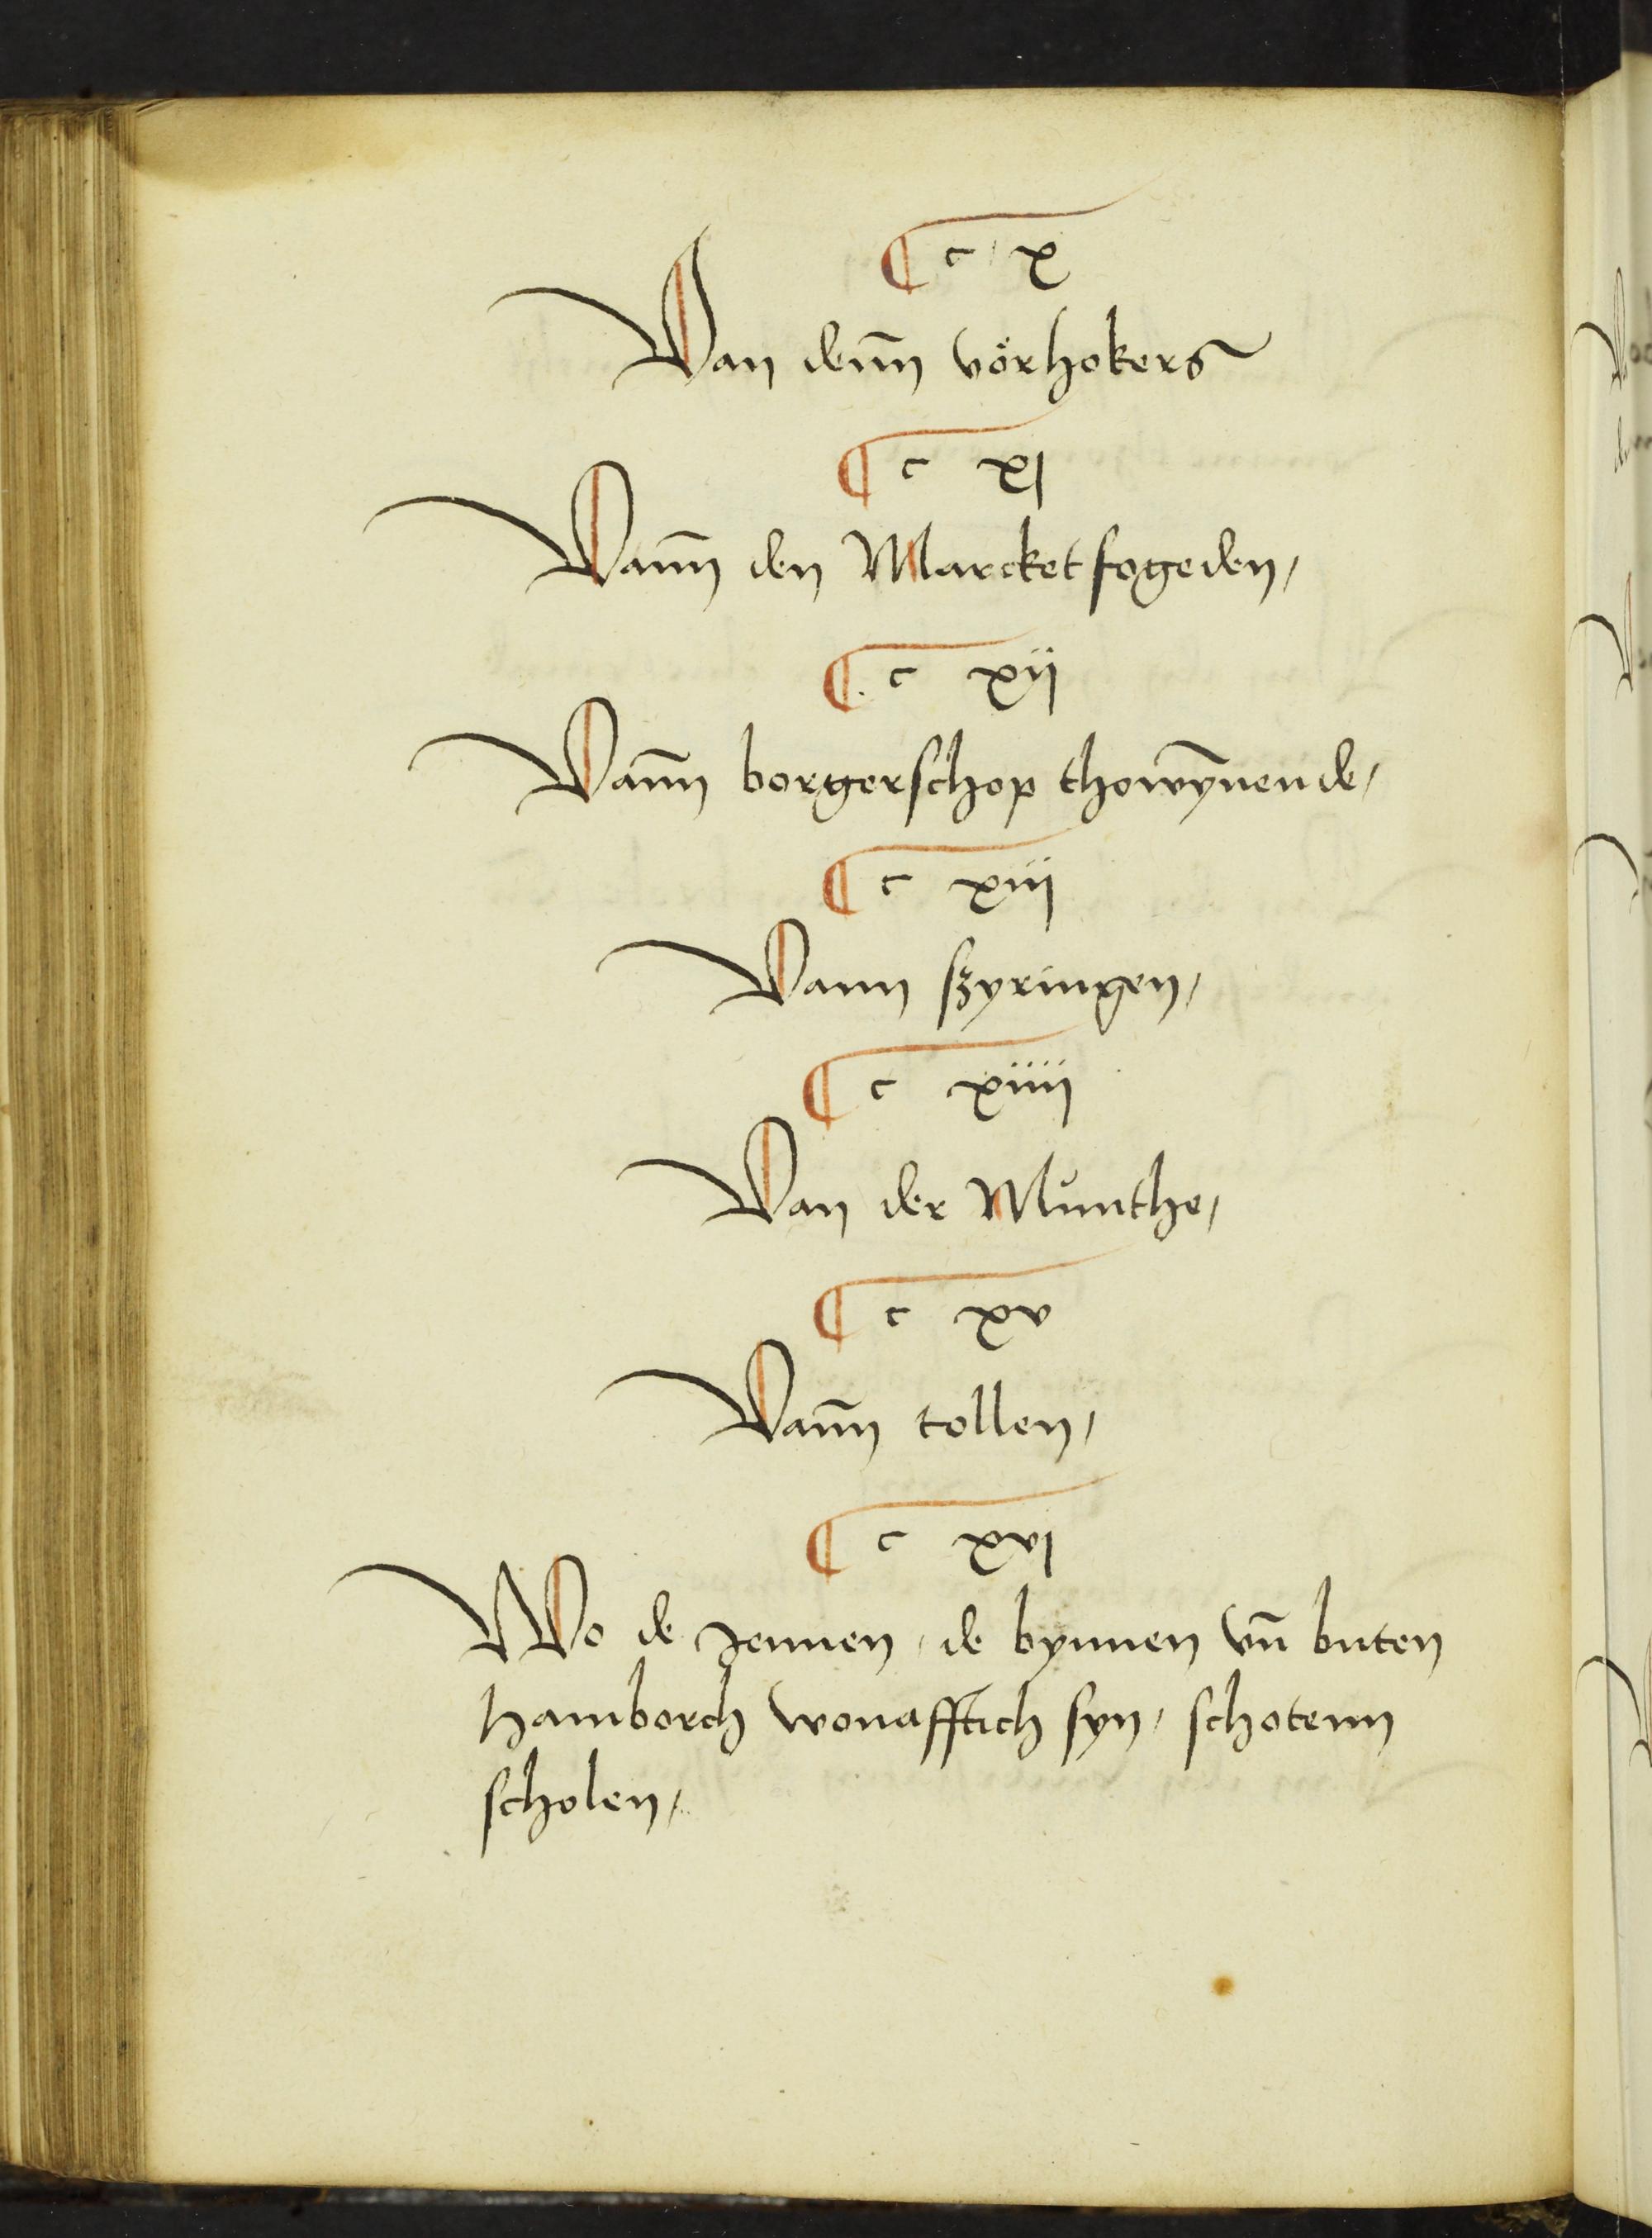 ¶ c x
Van denn̄ vörhokers
¶ c xi
Vann̄ den Marcketfogeden,
¶ c xij
Vann̄ borgerschop thowȳnende,
¶ c xiij
Vann szyringen,
¶ c xiiij
Van der Munthe,
¶ c xv
Vann̄ tollen,
¶ c xvi
Wo de jennen, de bynnen vn̄ buten
Hamborch wonafftich syn, schotenn
scholen,